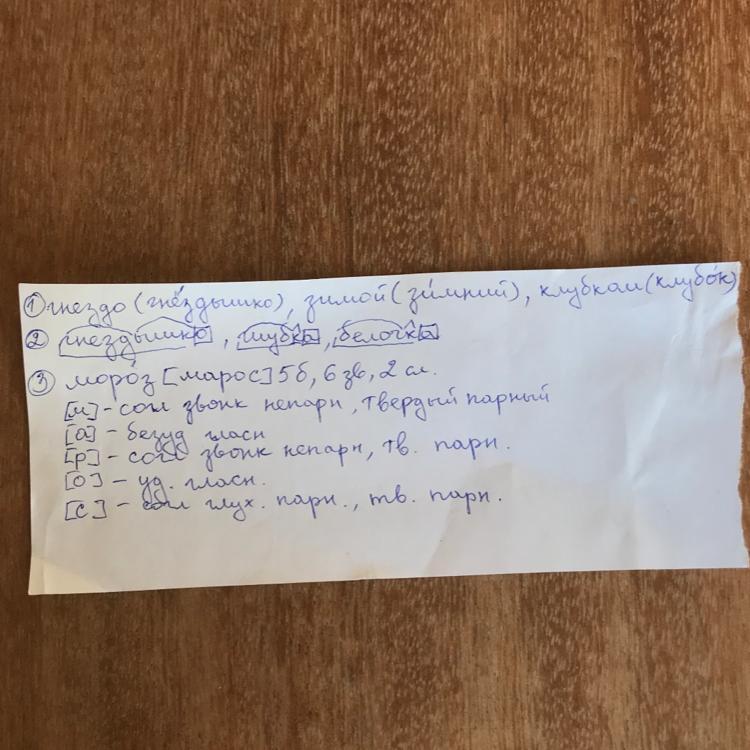 ① гнездо (гнёздышко), зимой (зи́мний), клубком (клубо́к)
② гнездышко, шубка, белочка
③ моро́з [марос] 5б, 6 зв, 2 сл.
[м] - согл звонк непарн, твердый парный
[а] - безуд гласн
[р] - согл звонк непарн, тв. парн.
[о] - уд. гласн.
[с] - согл глух. парн., тв. парн.